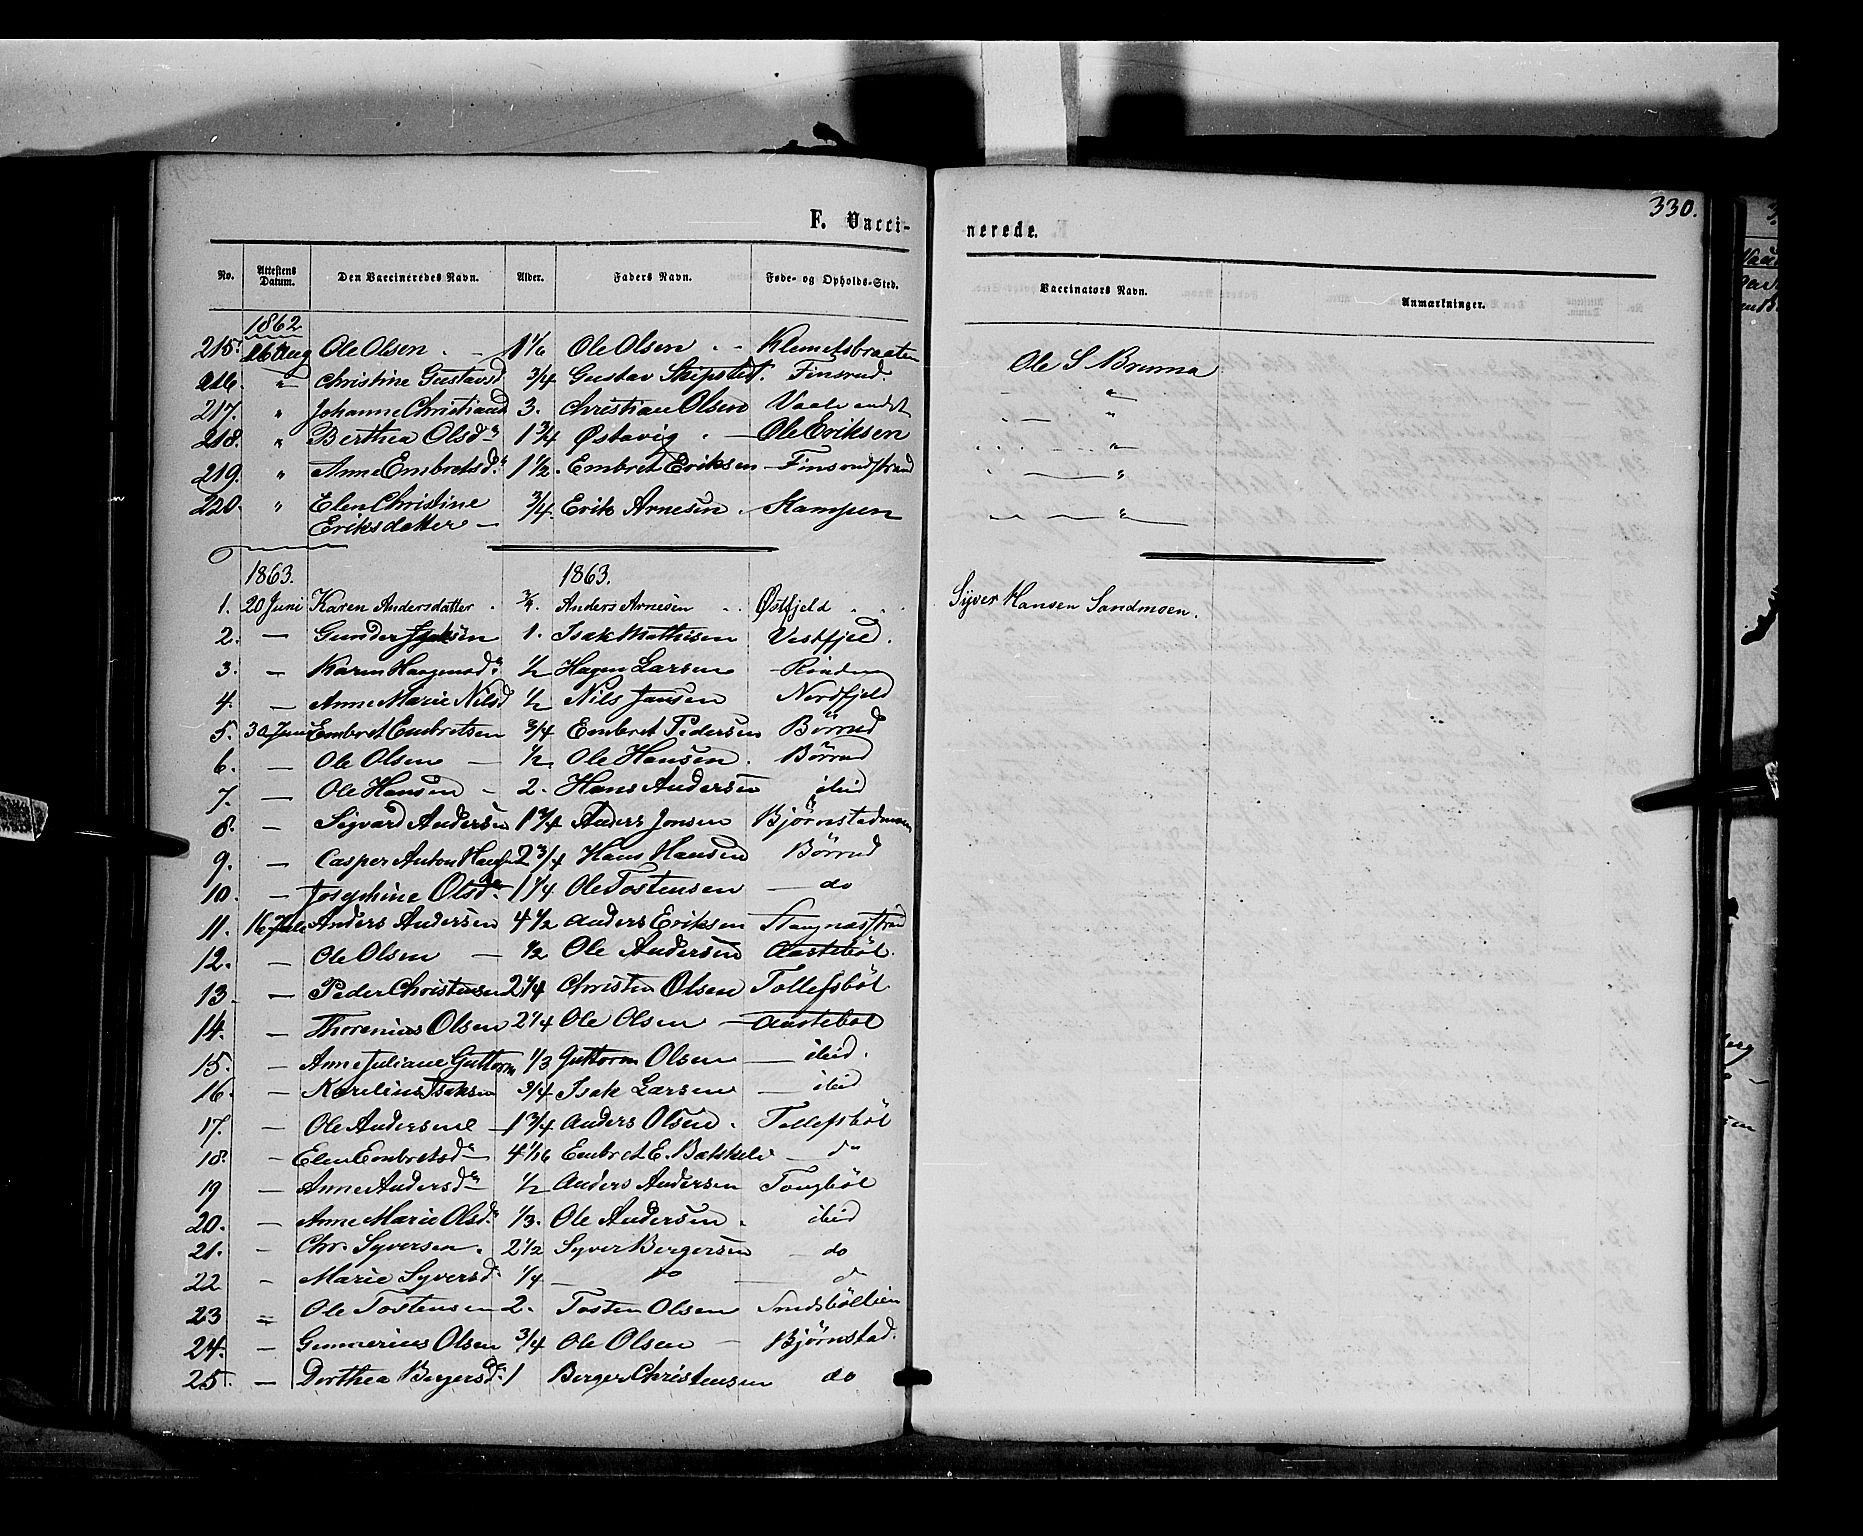 330.
F. Vacci-
nerede.
No. Attestens Datum. Den Vaccineredes Navn. Alder. Faders Navn. Føde- og Opholds-Sted. Vaccinators Navn. Anmærkninger.
1862
215. 26 Aug Ole Olsen 1 1/6 Ole Olsen Klemetsbraaten Ole S Brunna
216. " Christine Gustavsd 3/4 Gustav Skipsted. Finsrud. "
217. " Johanne Christiansd 3. Christian Olsen "
218. " Berthea Olsd 1 3/4 Østavig - Ole Eriksen "
219. " Anne Embretsd. 1 1/2 Embret Eriksen - Finsrudstrand "
220. " Elen Christine 3/4 Erik Arnesen Kampen "
Eriksdatter
1863. 1863.
1. 20 Juni Karen Andersdatter 3/4 Anders Arnesen Østfjeld Syver Hansen Sandmoen.
2. — Gunder Isaksen 1. Isak Mathisen Vestfjeld.
3. — Karen Haagensd. 1/2 Hagen Larsen Rinden
4. — Anne Marie Nilsd 1/2 Nils Jansen Nordfjeld
5. 30 Juni Embret Embretsen 3/4 Embret Pedersen Börrud
6. — Ole Olsen 1/2 Ole Hansen. Börrud
7. — Ole Hansen 2. Hans Andersen ibid
8. — Sigvard Andersen 1 3/4 Anders Jonsen Bjørnstadmoen
9. — Casper Anton Hansen 2 3/4 Hans Hansen Börrud
10. — Josephine Olsd. 1 1/4 Ole Tostensen — do
11. 16 Juli Anders Andersen 4 1/2 Anders Eriksen Stangnæsstrand
12. — Ole Olsen 1/2 Ole Andersen Aastebøl.
13. — Peder Christensen 2 1/4 Christen Olsen Tollefsbøl
14. — Thorenius Olsen 2 1/4 Ole Olsen — Aastebøl
15. — Anne Juliane Guttorm 1/3 Guttorm Olsen — ibid.
16. — Karelius Isaksen 3/4 Isak Larsen — ibid
17. — Ole Andersen 1 3/4 Anders Olsen. Tollefsbøl
18. — Elen Embretsd 4 1/16 Embret E. — do
19 — Anne Andersd 1/2 Anders Andersen Tongbøl
20. — Anne Marie Olsd. 1/3. Ole Andersen. ibid
21. - Chr. Syversen. 2 1/2 Syver Bergersen — do
22 - Marie Syversd. 1/4 — do — do
23 = Ole Tostensen 2. Tosten Olsen Smedsböllien
24. — Gunnerius Olsen 3/4 Ole Olsen — Bjørnstad.
25. — Dorthea Bergersd. 1 Berger Christensen do